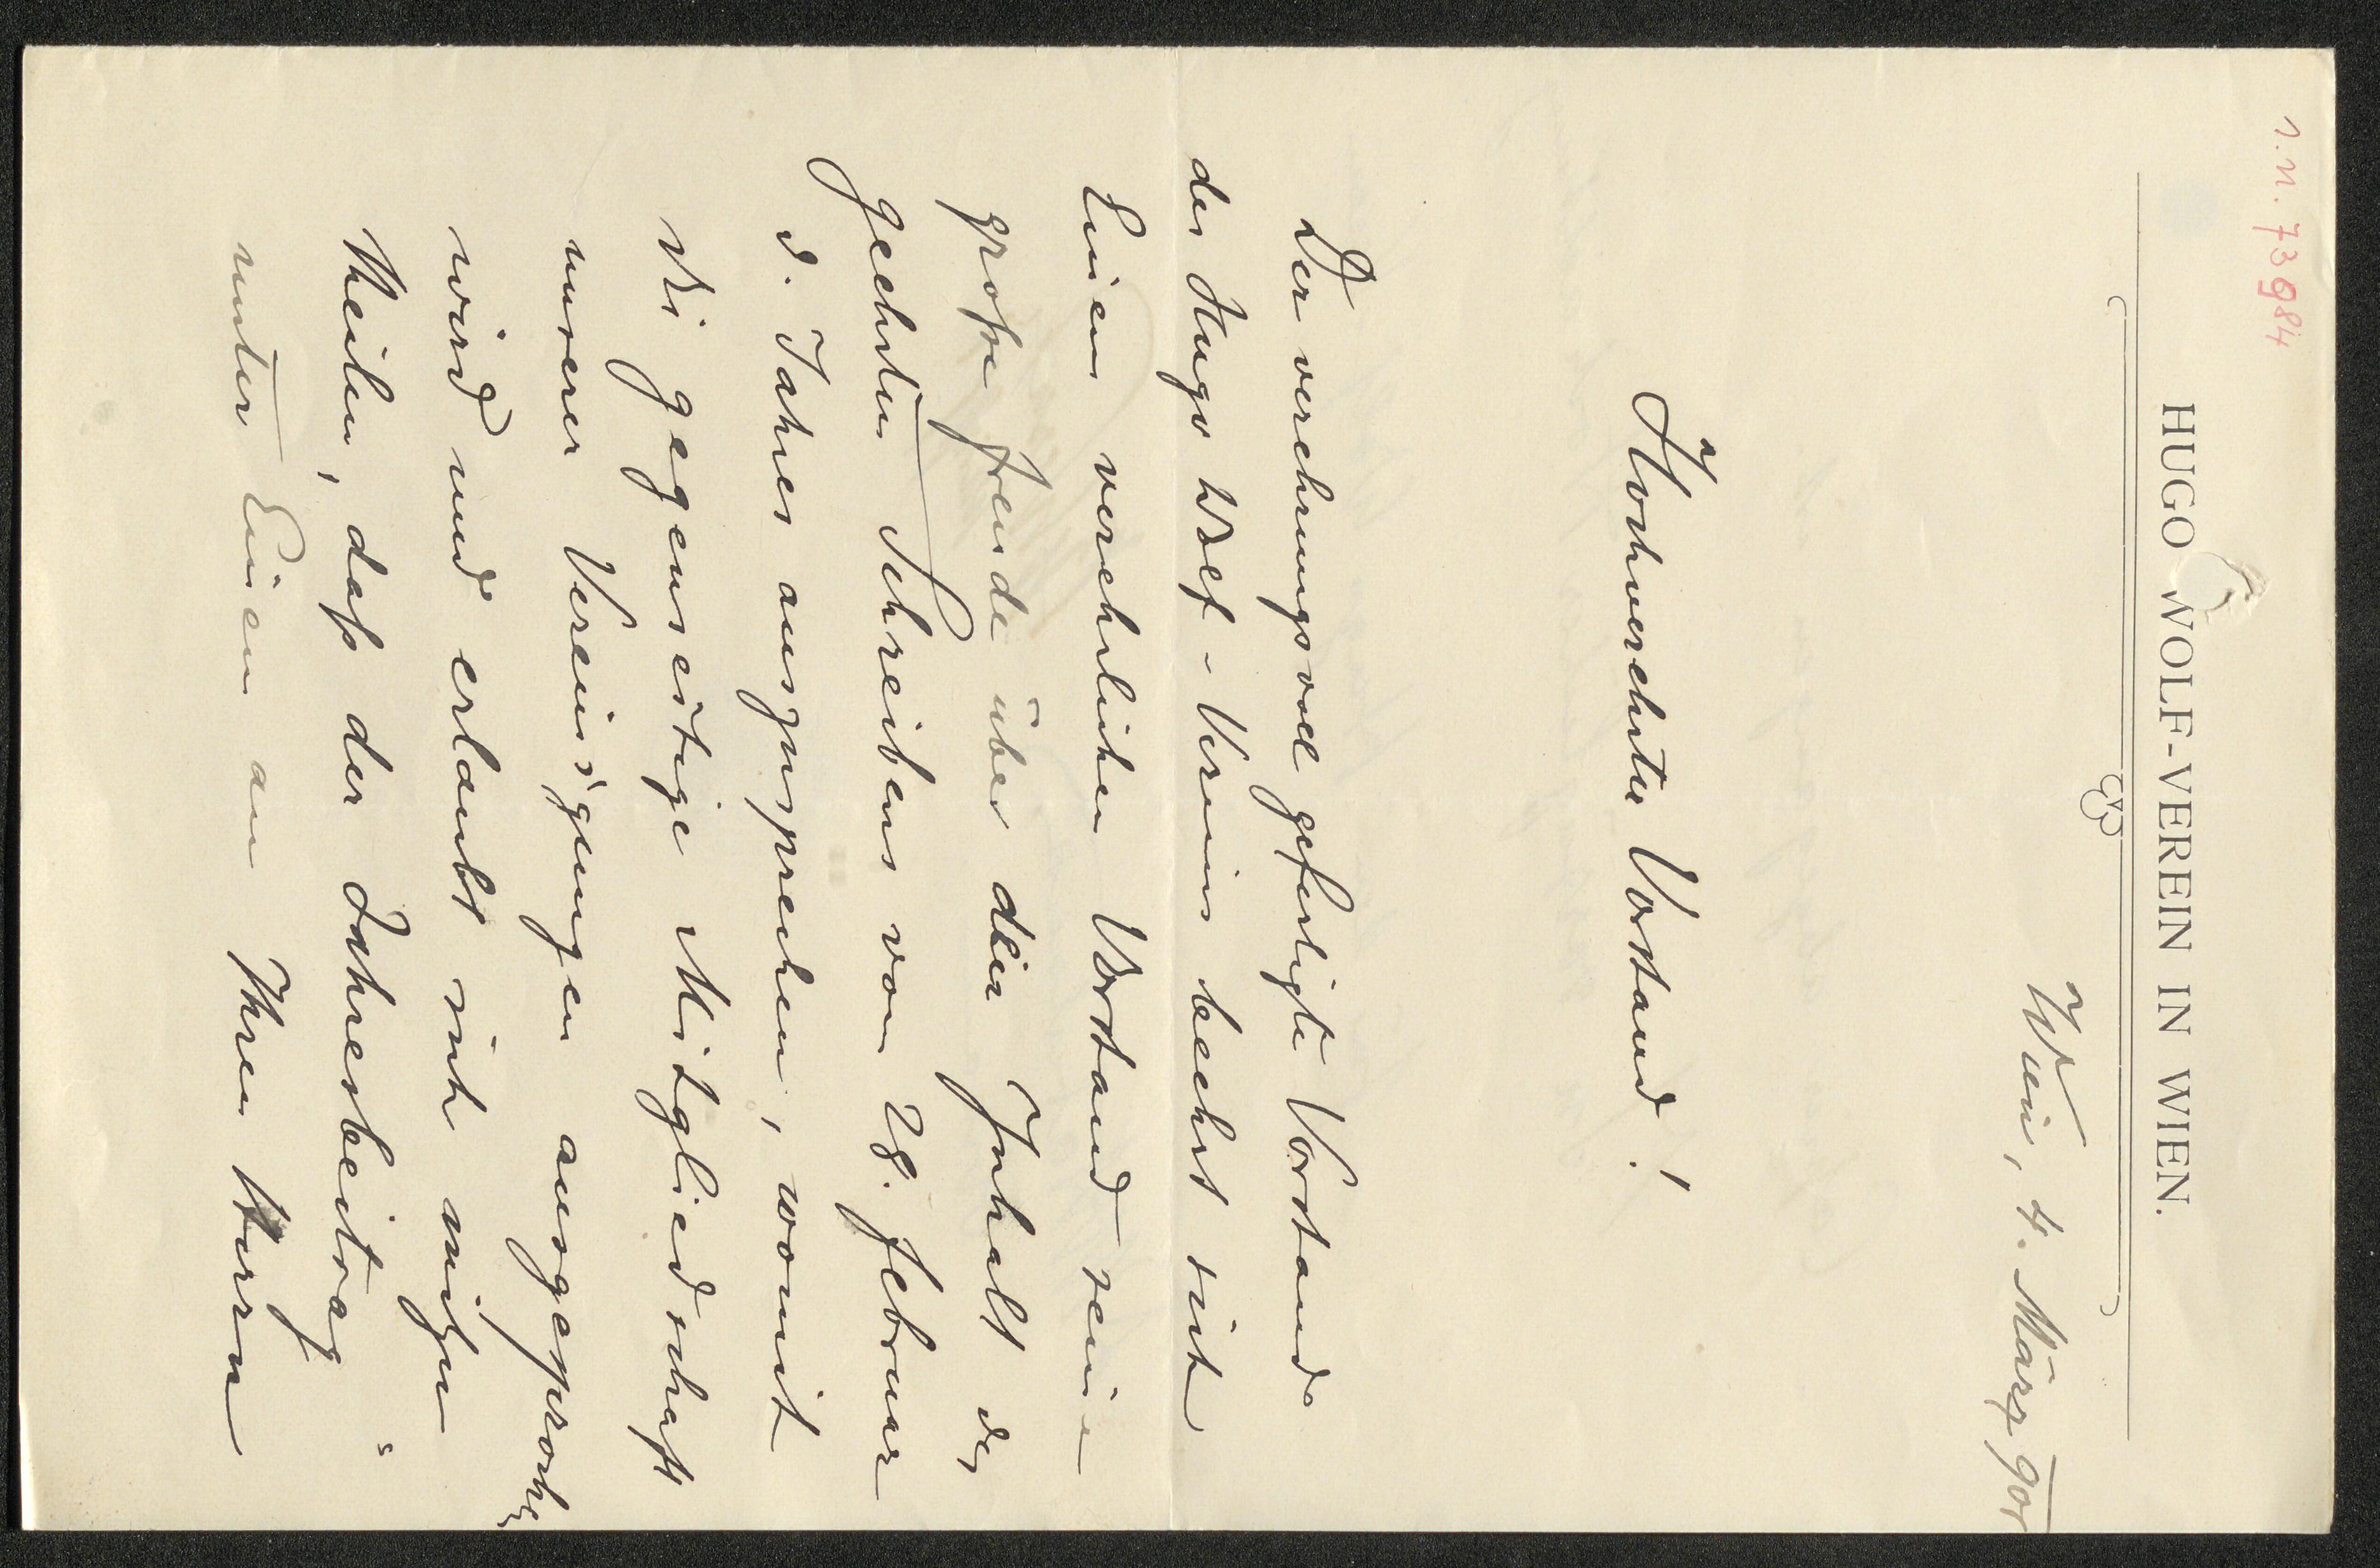 I.N. 73984
HUGO WOLF-VEREIN IN WIEN.
Wien, 4. März 905
Hochverehrter Vorstand!
Der verehrungsvoll gefertigte Vorstand
des Hugo Wolf-Vereins beehrt sich
Einem verehrlichen Vorstand seine
große Freude über den Inhalt des
geehrten Schreibens vom 28. Februar
d. Jahres auszusprechen, womit
die gegenseitige Mitgliedschaft
unserer Vereinigungen ausgesprochen
wird und erlaubt sich mitzu
theilen, daß der Jahresbeitrag
unter Einem an Ihren Herrn